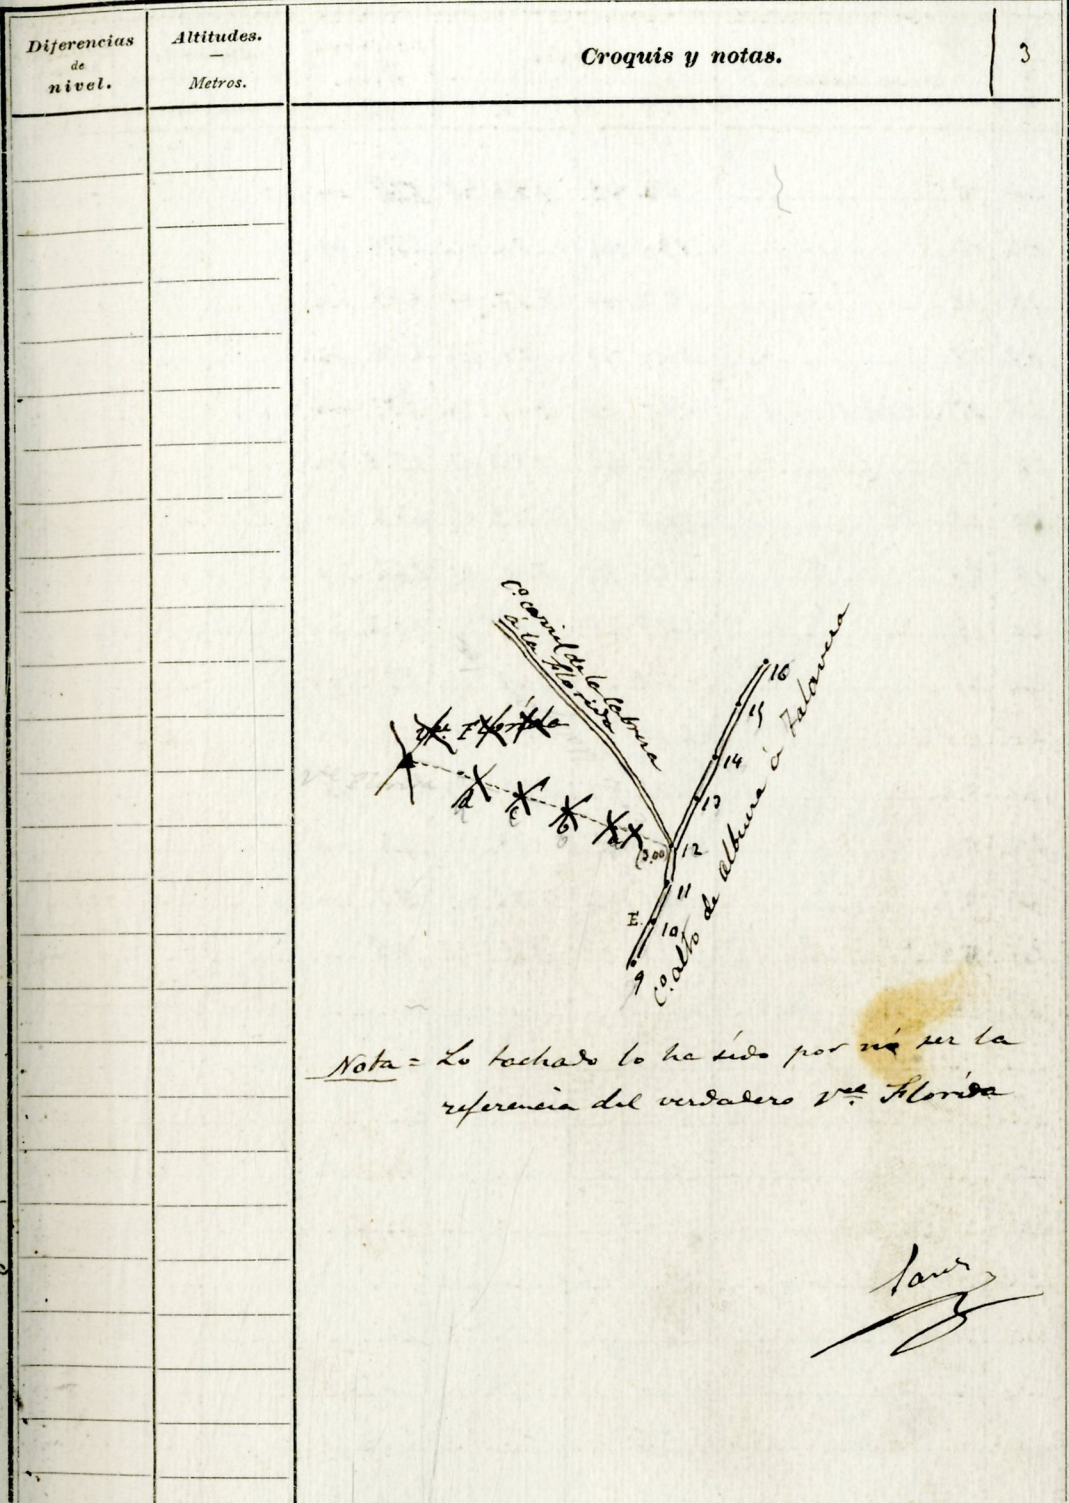 Diferencias
de
nivel.
Altitudes.
Metros.
Croquis y notas.
3
Cº carril de la Cabrera
á la Florida
Florida
d
c
b
a
(3.00)
16
15
14
13
12
11
E.
10
9
Cº. alto de albuera á Talavera
Nota = Lo tachado lo ha sído por nó ser la
referencia del verdadero Vce. Florída